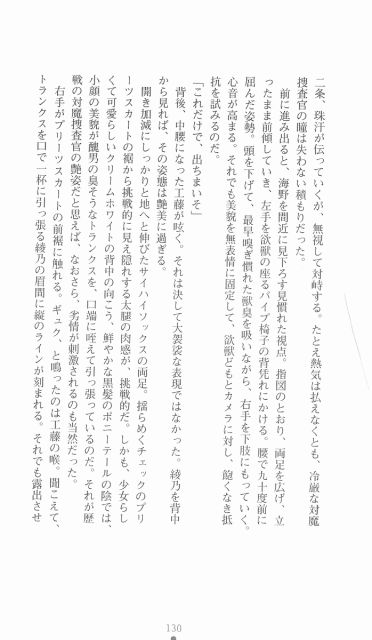 二条、珠汗が伝っていくが、無視して対峙する。たとえ熱気は払えなくとも、冷厳な対魔
捜査官の瞳は失わない積もりだった。
前に進み出ると、海野を間近に見下ろす見慣れた視点。指図のとおり、両足を広げ、立
ったまま前傾していき、左手を欲獣の座るパイプ椅子の背凭れにかける。腰で九十度前に
屈んだ姿勢。頭を下げて、最早嗅ぎ慣れた獣臭を吸いながら、右手を下肢にもっていく。
心音が高まる。それでも美貌を無表情に固定して、欲獣どもとカメラに対し、飽くなき抵
抗を試みるのだ。
「これだけで、出ちまいそ」
背後、中腰になった工藤が呟く。それは決して大袈裟な表現ではなかった。綾乃を背中
から見れば、その姿態は艶美に過ぎる。
開き加減にしっかりと地へと伸びたサイハイソックスの両足。揺らめくチェックのプリ
ーツスカートの裾から挑戦的に見え隠れする太腿の肉感が、挑戦的だ。しかも、少女らし
くて可愛らしいクリームホワイトの背中の向こう、鮮やかな黒髪のポニーテールの陰では、
小顔の美貌が醜男の臭そうなトランクスを、口端に咥えて引っ張っているのだ。それが歴
戦の対魔捜査官の艶姿だと思えば、なおさら、劣情が刺激されるのも当然だった。
右手がプリーツスカートの前裾に触れる。ギュク、と鳴ったのは工藤の喉。聞こえて、
トランクスを口で一杯に引っ張る綾乃の眉間に縦のラインが刻まれる。それでも露出させ
130